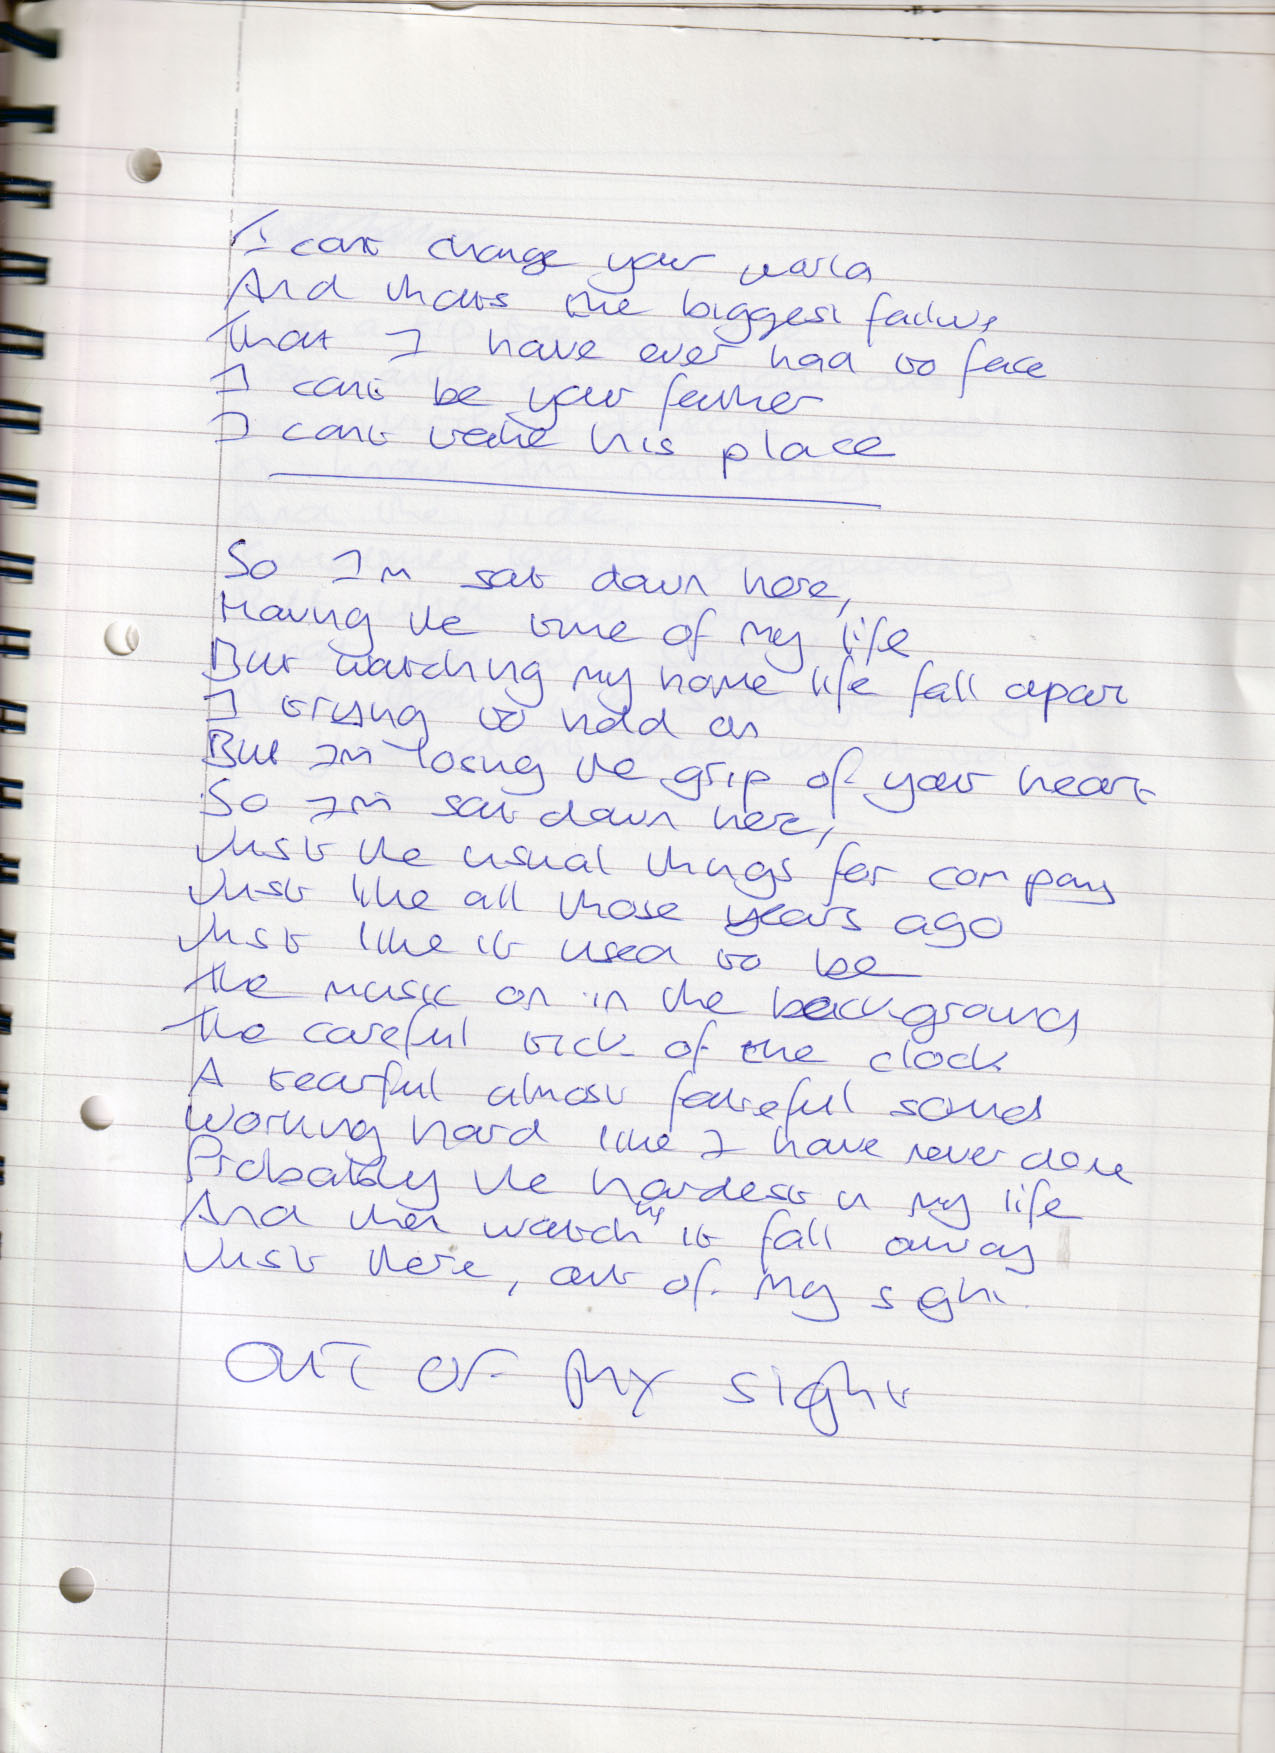 I cant change your world
And thats the biggest failure
That I have ever had to face
I cant be your father
I cant take his place
So Im sat down here,
Having the time of my life
But watching my home life fall apart
I trying to hold on
But Im losing the grip of your heart
So Im sat down here,
Just the usual things for company
Just like all those years ago
Just like it used to be
The music on in the background
The careful tick of the clock
A tearful almost fateful sound
Working hard like I have never done
Probably the hardest in my life
And then watching it fall away
Just there, out of my sight.
OUT OF MY sight